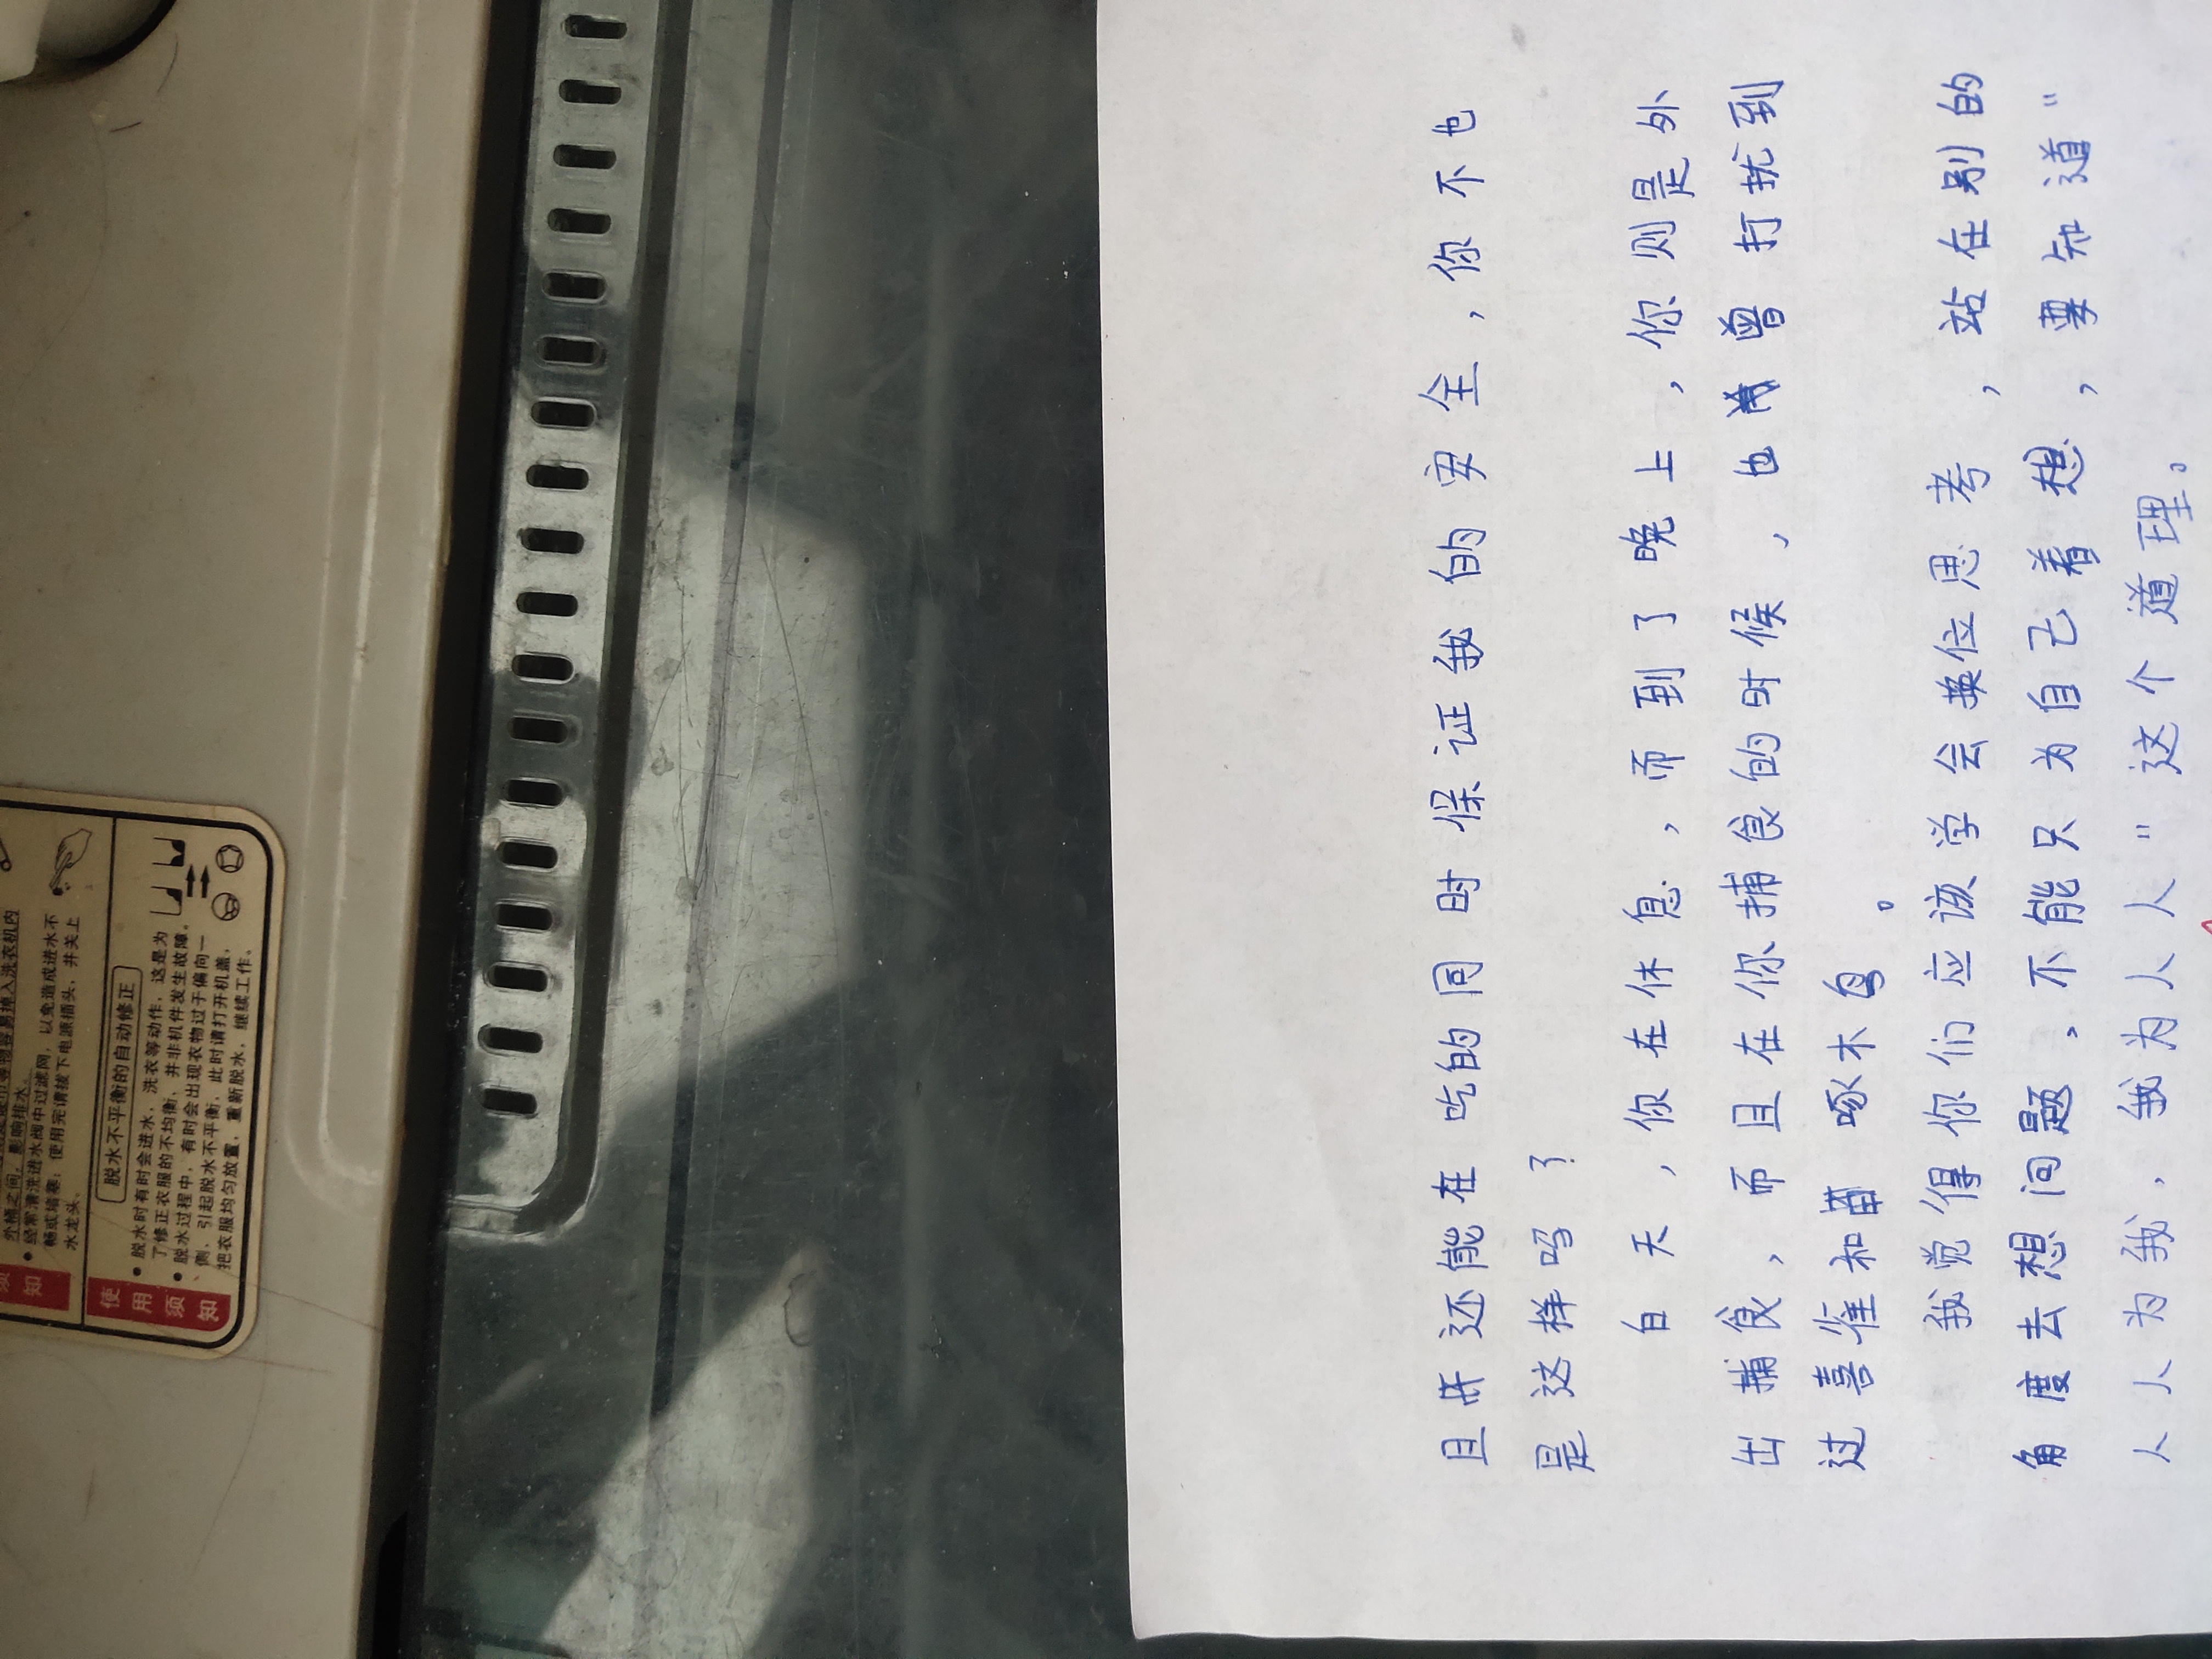 外桶之间，影响排水。
经常清洗进水阀中过滤网，以免造成进水不
畅或堵塞；使用完请拔下电源插头，并关上
水龙头。
须
知
脱水不平衡的自动修正
使
用
须
知
脱水时有时会进水，洗衣等动作，这是为
了修正衣服的不均衡，并非机件发生故障。
脱水过程中，有时会出现衣物过于偏向一
侧，引起脱水不平衡，此时请打开机盖，
把衣服均匀放置，重新脱水，继续工作。
且还能在吃的同时保证我的安全，你不也
是这样吗？
白天，你在休息，而到了晚上，你则是外
出捕食，而且在你捕食的时候，也曾打扰到
过喜雀和啄木鸟。
我觉得你们应该学会换位思考，站在别的
角度去想问题，不能只为自己着想，要知道"
人人为我，我为人人"这个道理。